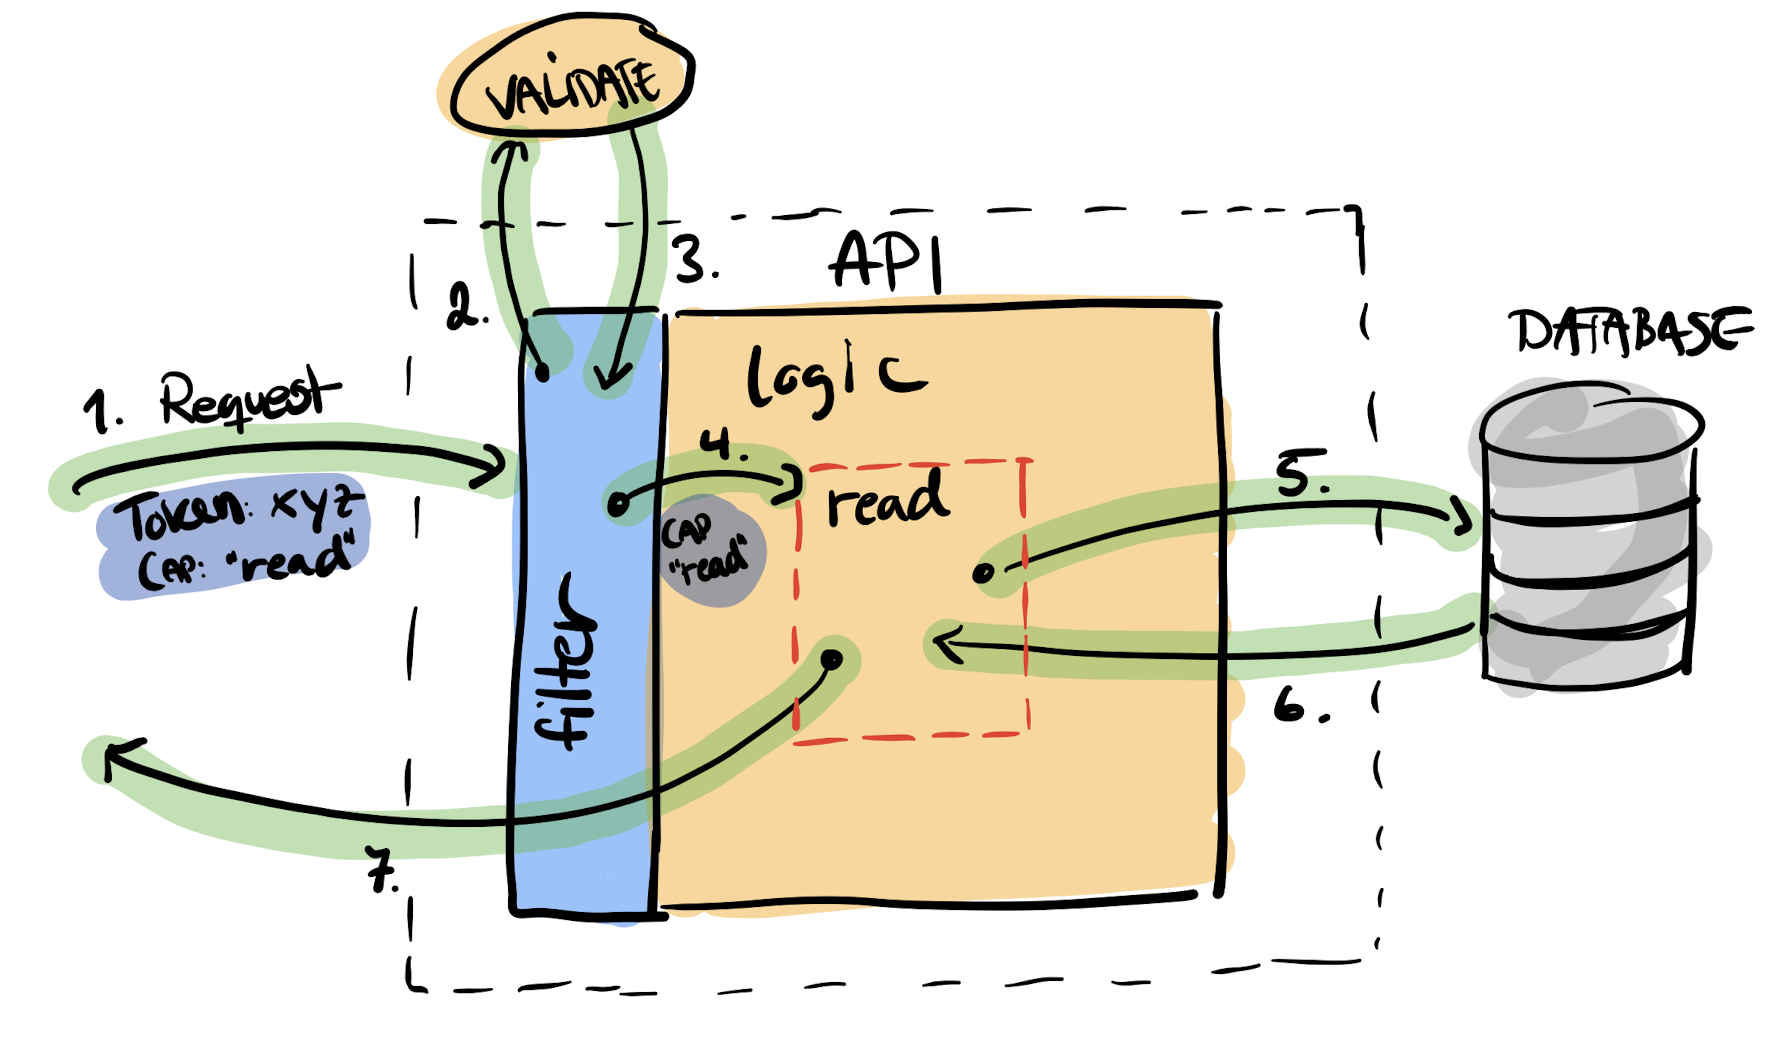 VALIDATE
2.
3.
API
1. Request
Token: xyz
CAP: "read"
filter
logic
4.
CAP
"read"
read
5.
6.
7.
DATABASE